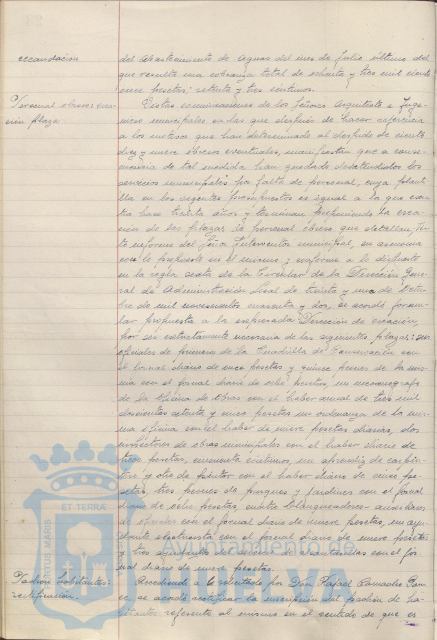 recaudación
del Abastecimiento de Aguas del mes de Julio último del
que resulta una cobranza total de ochenta y tres mil ciento
once pesetas, setenta y tres céntimos.
Personal obrero:
ción plaza.
comunicaciones de los Señores Arquitecto e Inge-
nieros municipales en las que después de hacer referencia
a los motivos que han determinado el despido de ciento
diez y nueve obreros eventuales, manifiestan que a conse-
cuencia de tal medida han quedado desatendidos los
servicios municipales por falta de personal, cuya planti-
lla en los vigentes presupuestos es igual a la que
hace treinta años y terminan la crea-
ción de las plazas de personal obrero que detallan.
informe del Señor Interventor municipal, en armonía
con lo propuesto en el mismo y conforme a lo dispuesto
en la regla sexta de la Circular de la Dirección Gene-
ral de Administración Local de treinta y uno de
de mil novecientos cuarenta y dos, se acordó formu-
lar propuesta a la expresada Dirección de creación,
por ser estrictamente necesaria de las siguientes plazas:
oficiales de primera de la Cuadrilla de Conservación con
el jornal diario de once pesetas y quince peones de la mis-
ma con el jornal diario de ocho pesetas, un mecanógrafo
de la Oficina de Obras con el haber anual de tres mil
doscientas setenta y cinco pesetas un ordenanza de la mis-
ma oficina con el haber de nueve pesetas diarias, dos
inspectores de obras municipales con el haber diario de
pesetas, cincuenta céntimos, un aprendiz de carpin-
tero y otro de pintor con el haber diario de cinco pe-
setas, tres peones de parques y jardines con el jornal
diario de ocho pesetas, cuatro blanqueadores auxiliares
de con el jornal diario de nueve pesetas, un ayu-
dante electricista con el jornal diario de nueve pesetas
y tres con el jor-
nal diario de nueve pesetas.
Padrón habitantes:
rectificación.
Accediendo a lo solicitado por Don Rafael
se acordó rectificar la inscripción del padrón de ha-
bitantes referente al mismo en el sentido de que es
ET TERRÆ
PORTUS MARIS
Ayuntamiento de
HUELVA